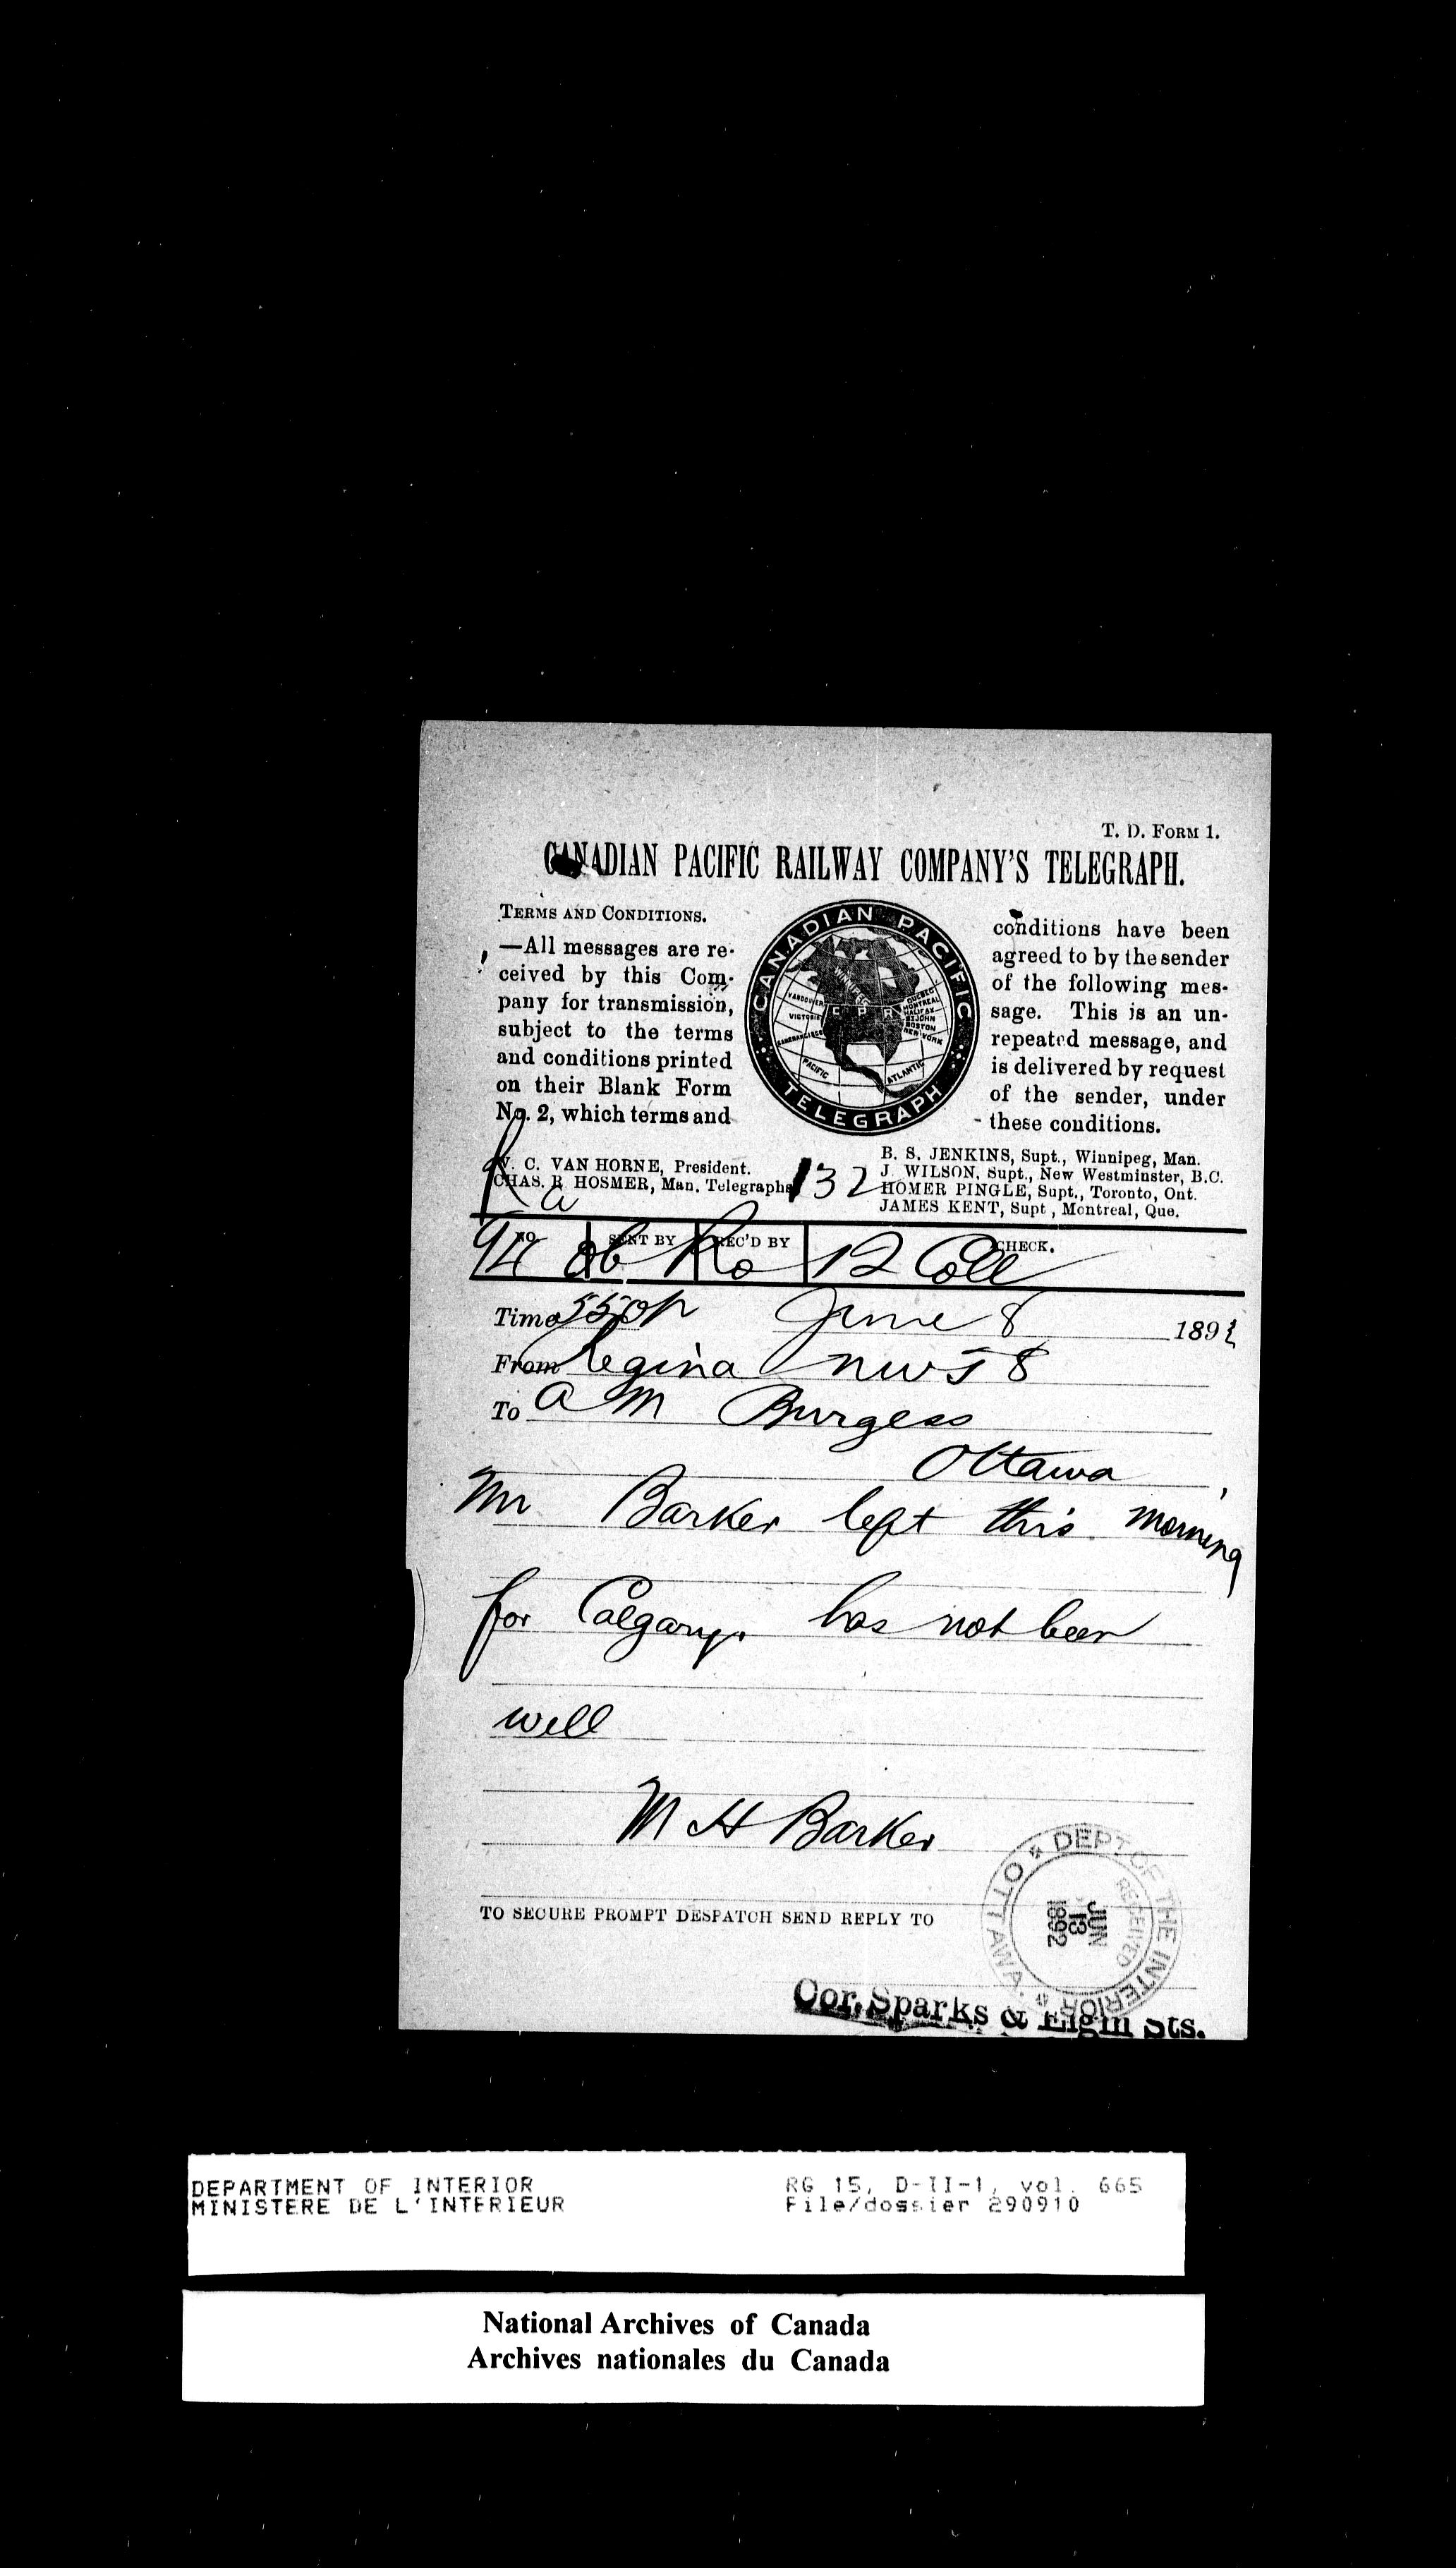 T. D. FORM 1.
CANADIAN PACIFIC RAILWAY COMPANY'S TELEGRAPH.
TERMS AND CONDITIONS.
—All messages are re-
ceived by this Com-
pany for transmission,
subject to the terms
and conditions printed
on their Blank Form
No. 2, which terms and
CANADIAN PACIFIC
TELEGRAPH
WINNIPEG
VANCOUVER
VICTORIA
SANFRANCISCO
C. P. R.
QUEBEC
MONTREAL
HALIFAX
ST JOHN
BOSTON
NEW YORK
PACIFIC
ATLANTIC
conditions have been
agreed to by the sender
of the following mes-
sage. This is an un-
repeated message, and
is delivered by request
of the sender, under
these conditions.
W. C. VAN HORNE, President.
CHAS. R. HOSMER, Man. Telegraphs
132
B. S. JENKINS, Supt., Winnipeg, Man.
J. WILSON, Supt., New Westminster, B.C.
HOMER PINGLE, Supt., Toronto, Ont.
JAMES KENT, Supt, Montreal, Que.
Ra
NO. SENT BY REC'D BY CHECK.
94 Ro 12 Coll
Time 550p June 8 1892
From Regina NWT 8
To A M Burgess
Ottawa
Mr Barker left this morning
for Calgary. has not been
well
M H Barker
TO SECURE PROMPT DESPATCH SEND REPLY TO
DEPT OF THE INTERIOR
OTTAWA.
RECEIVED
JUN
13
1892
Cor. Sparks & Elgin Sts.
DEPARTMENT OF INTERIOR RG 15, D-II-1, vol. 665
MINISTERE DE L'INTERIEUR File/dossier 290910
National Archives of Canada
Archives nationales du Canada